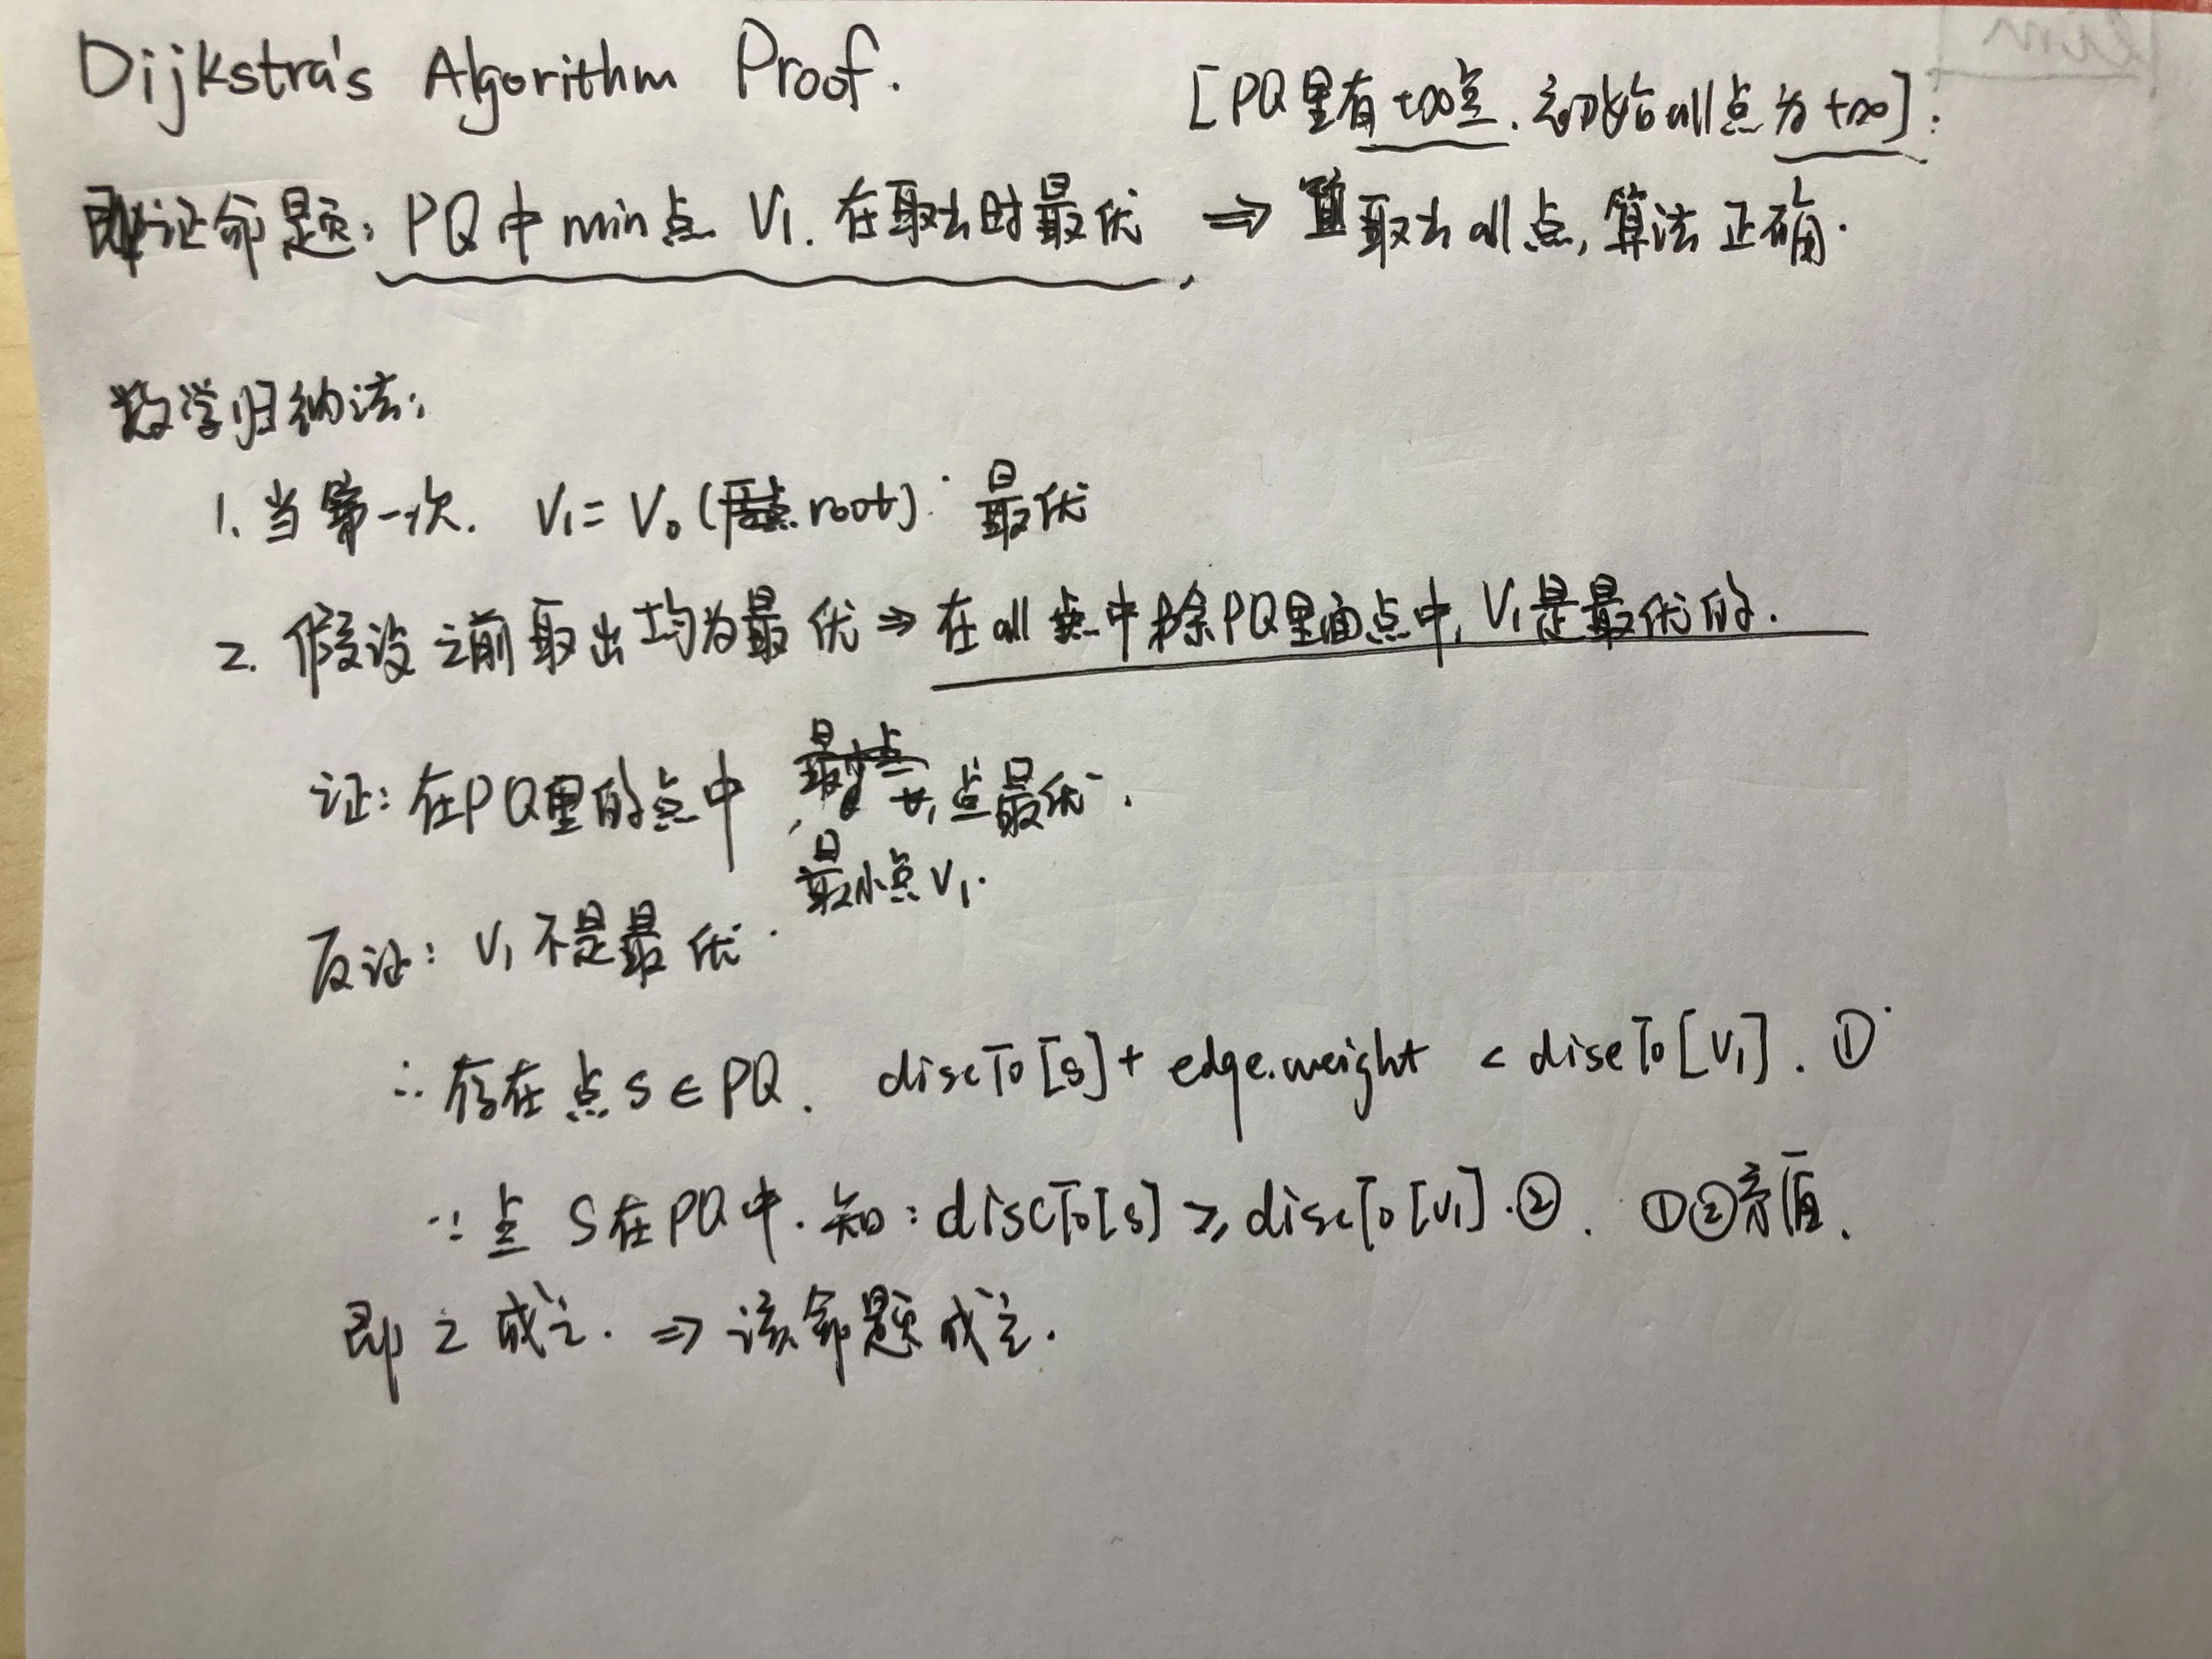 Dijkstra's Algorithm Proof.
[PQ里有+∞点. 初始all点为+∞]:
即证命题: PQ中min点 V₁. 在取出时最优 ⇒ 取出all点, 算法正确.
数学归纳法:
1. 当第一次. V₁ = V₀ (root). 最优
2. 假设之前取出均为最优 ⇒ 在all点中除PQ里面点中, V₁是最优的.
证: 在PQ里的点中, 点最优.
最小点V₁.
反证: V₁不是最优.
∴ 存在点 s ∈ PQ. discTo[s] + edge.weight < discTo[V₁]. ①
∵ 点 S在PQ中. 知: discTo[s] ≥ discTo[V₁]. ②. ①②矛盾.
即 2 成立. ⇒ 该命题成立.